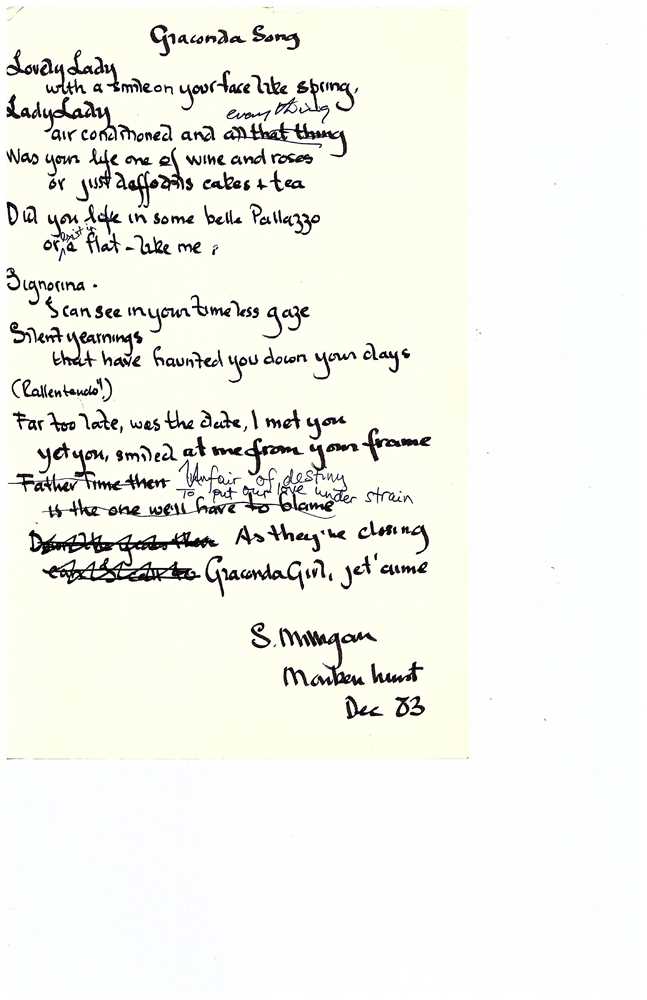 Graconda Song
Lovely Lady
with a smile on your face like spring,
Lady Lady
everything
air conditioned and all that thing
Was your life one of wine and roses
or just daffodils cakes + tea
Did you life in some belle Pallazzo
or a flat - like me ?
Signorina .
I can see in your timeless gaze
Silent yearnings
that have haunted you down your days
(Rallentando!)
Far too late, was the date, I met you
yet you, smiled at me from your frame
Father Time then Unfair of destiny
To put our love under strain
is the one we'll have to blame
As they're closing
Graconda Girl, jet'aime
S. Milligan
Monken hurst
Dec 83